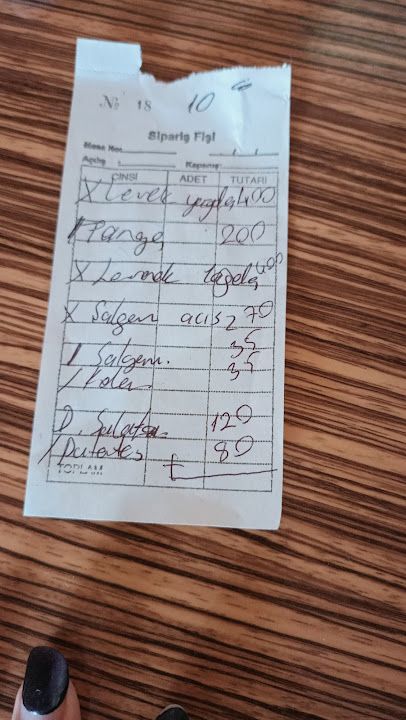 № 18 10
Sipariş Fişi
Masa No:
Açılış : Kapanış:
CİNSİ ADET TUTARI
X Levrek 400
200
X Levrek 400
X Salgam acıs 2 70
/ Salgam. 35
/ Kola 35
D. Salata 120
/ Patates 80
TOPLAM